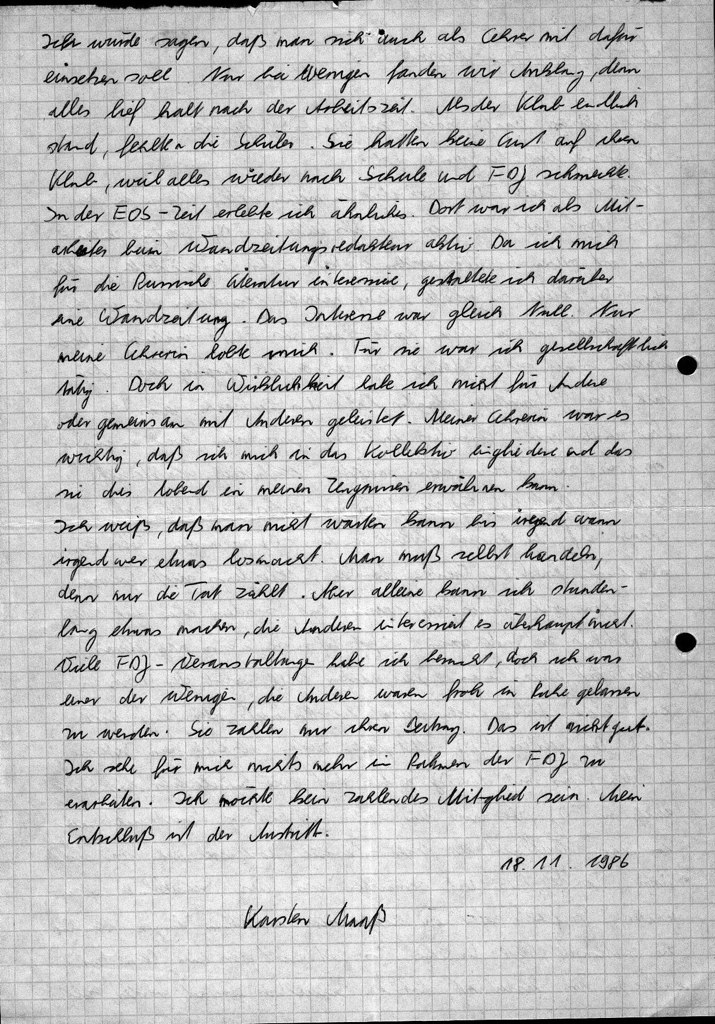 Ich würde sagen, daß man sich auch als Lehrer mit dafür
einsetzen soll. Nur bei Wenigen fanden wir Anklang, denn
alles lief halt nach der Arbeitszeit. Als der Klub endlich
stand, fehlten die Schüler. Sie hatten keine Lust auf ihren
Klub, weil alles wieder nach Schule und FDJ schmeckte.
In der EOS-Zeit erlebte ich ähnliches. Dort war ich als Mit-
arbeiter beim Wandzeitungsredakteur aktiv. Da ich mich
für die Russische Literatur interessiere, gestaltete ich darüber
eine Wandzeitung. Das Interesse war gleich Null. Nur
meine Lehrerin lobte mich. Für sie war ich gesellschaftlich
tätig. Doch in Wirklichkeit habe ich nicht für Andere
oder gemeinsam mit Anderen geleistet. Meiner Lehrerin war es
wichtig, daß ich mich in das Kollektiv eingliedere und das
sie dies lobend in meinen Zeugnissen erwähnen kann.
Ich weiß, daß man nicht warten kann bis irgend wann
irgend wer etwas losmacht. Man muß selbst handeln,
denn nur die Tat zählt. Aber alleine kann ich stunden-
lang etwas machen, die Anderen interessiert es überhaupt nicht.
Viele FDJ-Veranstaltungen habe ich besucht, doch ich war
einer der Wenigen, die Anderen waren froh in Ruhe gelassen
zu werden. Sie zahlen nur ihren Beitrag. Das ist nicht gut.
Ich sehe für mich nichts mehr im Rahmen der FDJ zu
erarbeiten. Ich möchte kein zahlendes Mitglied sein. Mein
Entschluß ist der Austritt.
18.11.1986
Karsten Maaß